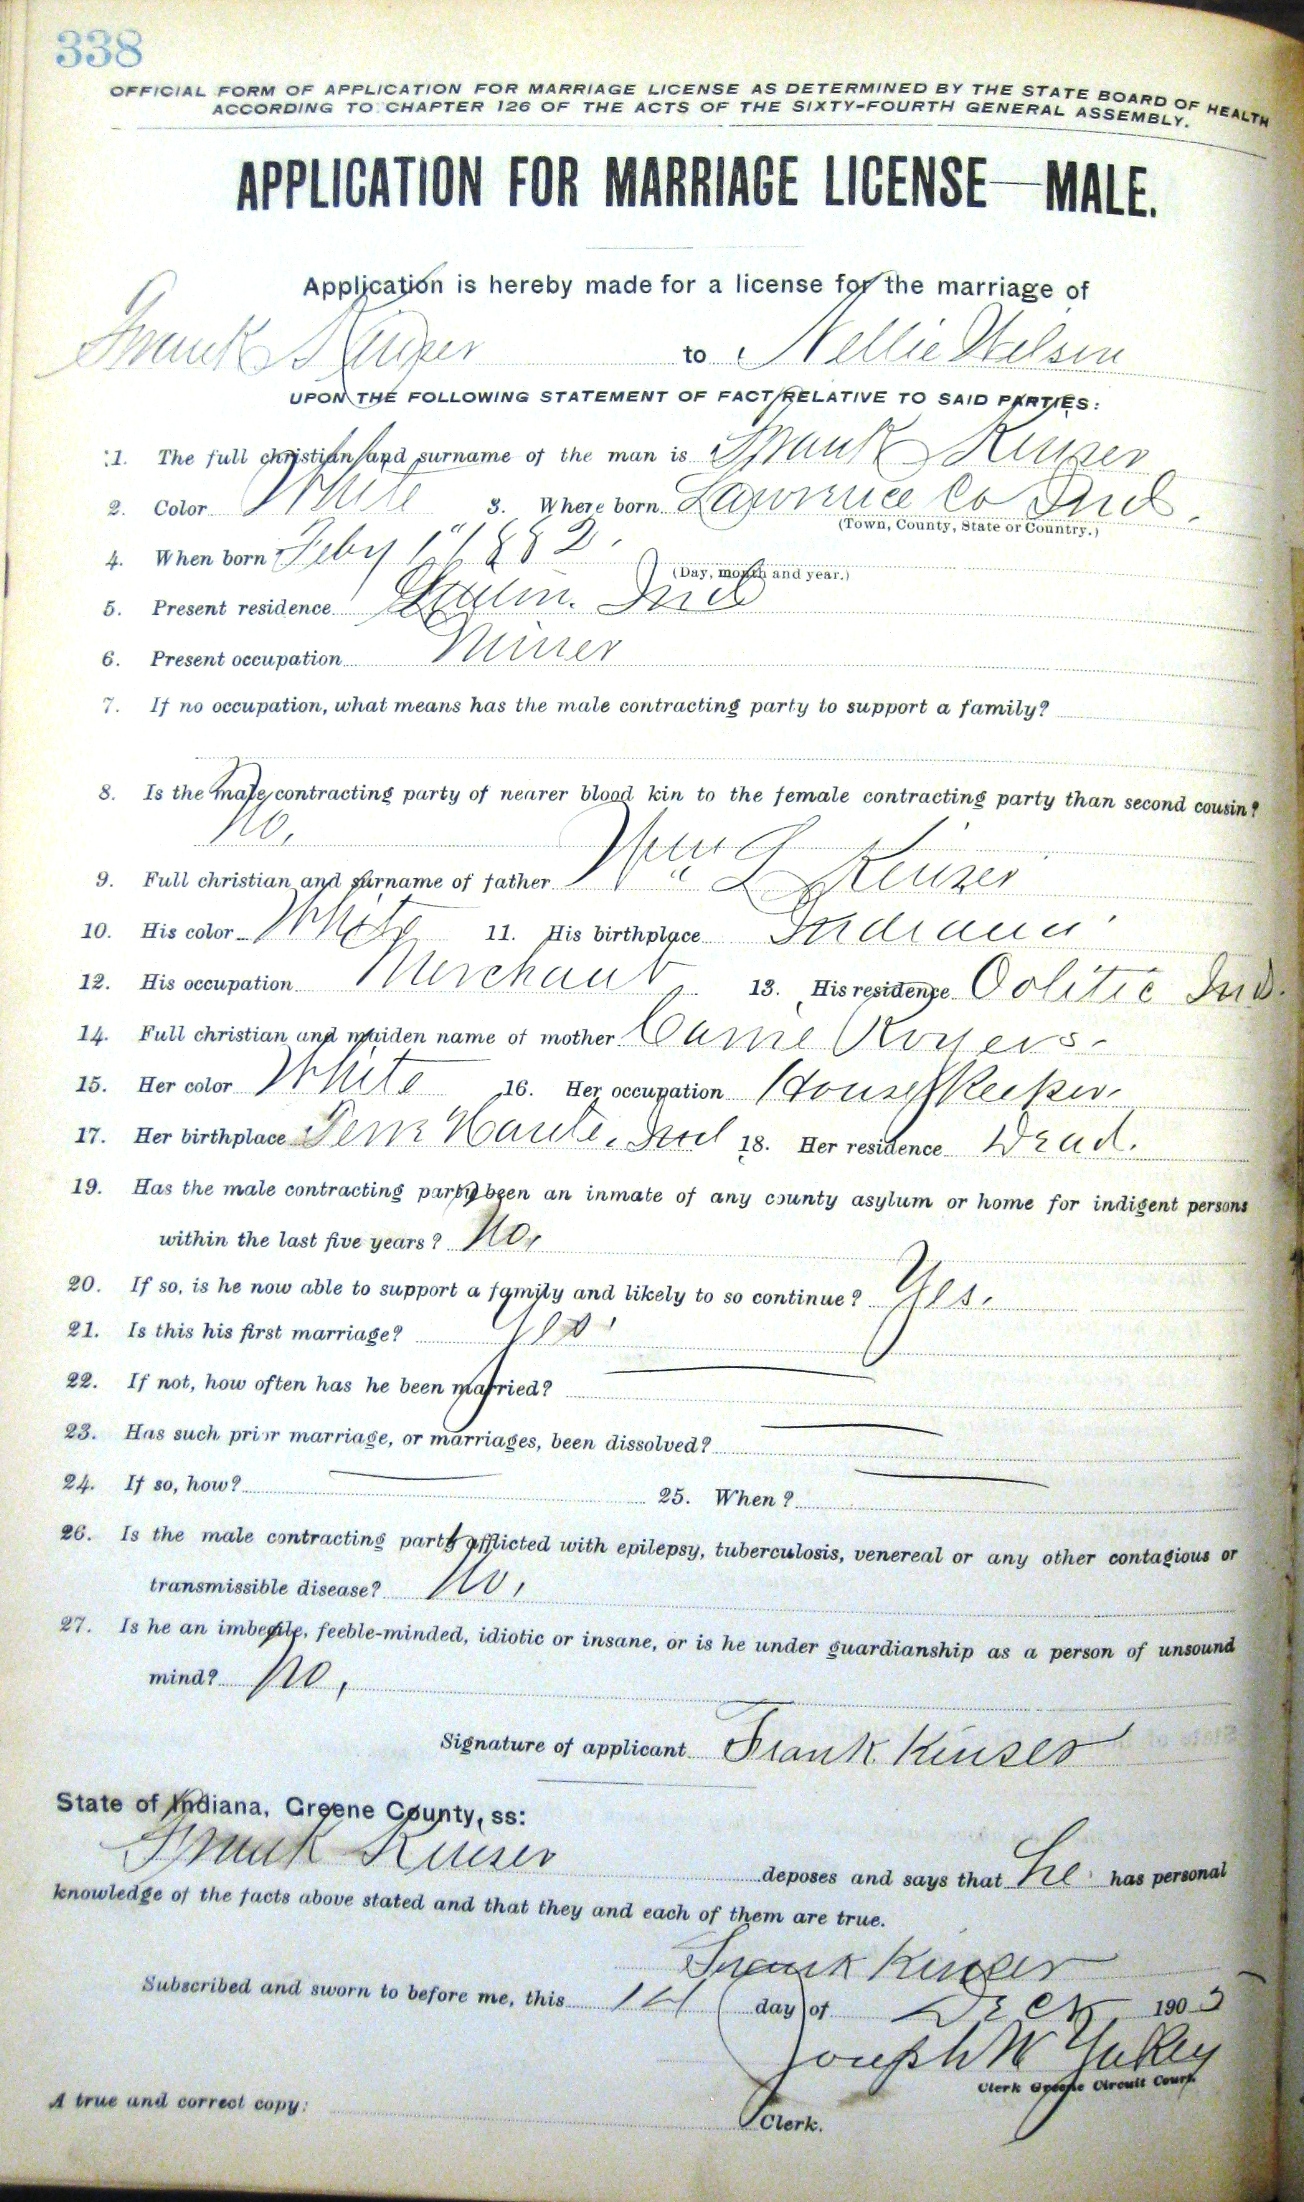 338
OFFICIAL FORM OF APPLICATION FOR MARRIAGE LICENSE AS DETERMINED BY THE STATE BOARD OF HEALTH
ACCORDING TO CHAPTER 126 OF THE ACTS OF THE SIXTY-FOURTH GENERAL ASSEMBLY.
APPLICATION FOR MARRIAGE LICENSE—MALE.
Application is hereby made for a license for the marriage of
Frank Kinser to Nellie Wilson
UPON THE FOLLOWING STATEMENT OF FACT RELATIVE TO SAID PARTIES:
1. The full christian and surname of the man is Frank Kinser
2. Color White 3. Where born Lawrence Co Ind.
(Town, County, State or Country.)
4. When born Feby 1" 1882.
(Day, month and year.)
5. Present residence Ind
6. Present occupation Miner
7. If no occupation, what means has the male contracting party to support a family?
8. Is the male contracting party of nearer blood kin to the female contracting party than second cousin?
No.
9. Full christian and surname of father Wm L Kinser
10. His color White 11. His birthplace Indiana
12. His occupation Merchant 13. His residence Oolitic Ind.
14. Full christian and maiden name of mother Carrie Rogers.
15. Her color White 16. Her occupation House Keeper.
17. Her birthplace Terre Haute. Ind 18. Her residence Dead.
19. Has the male contracting party been an inmate of any county asylum or home for indigent persons
within the last five years? No.
20. If so, is he now able to support a family and likely to so continue? Yes.
21. Is this his first marriage? Yes.
22. If not, how often has he been married?
23. Has such prior marriage, or marriages, been dissolved?
24. If so, how? 25. When?
26. Is the male contracting party afflicted with epilepsy, tuberculosis, venereal or any other contagious or
transmissible disease? No,
27. Is he an imbecile, feeble-minded, idiotic or insane, or is he under guardianship as a person of unsound
mind? No,
Signature of applicant Frank Kinser
State of Indiana, Greene County, ss:
Frank Kinser deposes and says that he has personal
knowledge of the facts above stated and that they and each of them are true.
Frank Kinser
Subscribed and sworn to before me, this 14 day of Dec 1905
Joseph W Yakey
Clerk Greene Circuit Court.
A true and correct copy:
Clerk.